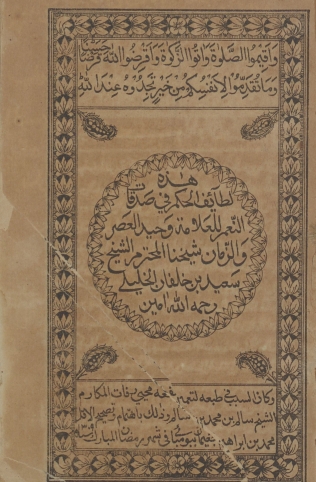 وأقيموا الصلوة وآتوا الزكوة وأقرضوا الله قرضا حسنا
وما تقدموا لأنفسكم من خير تجدوه عند الله
هذه
لطائف الحكم في صدقات
النعم للعلامة وحيد العصر
والزمان شيخنا المحترم الشيخ
سعيد بن خلفان الخليلي
رحمه الله آمين
وكان السبب في طبعه لتتميم نفعه محيي رفات المكارم
الشيخ سالم بن محمد بن سالم وذلك باهتمام
محمد بن ابراهيم في شهر رمضان المبارك